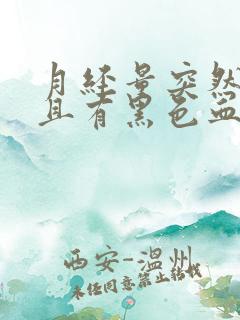 月经量突然
且有黑色血
西安-温州
未经同意禁止转载